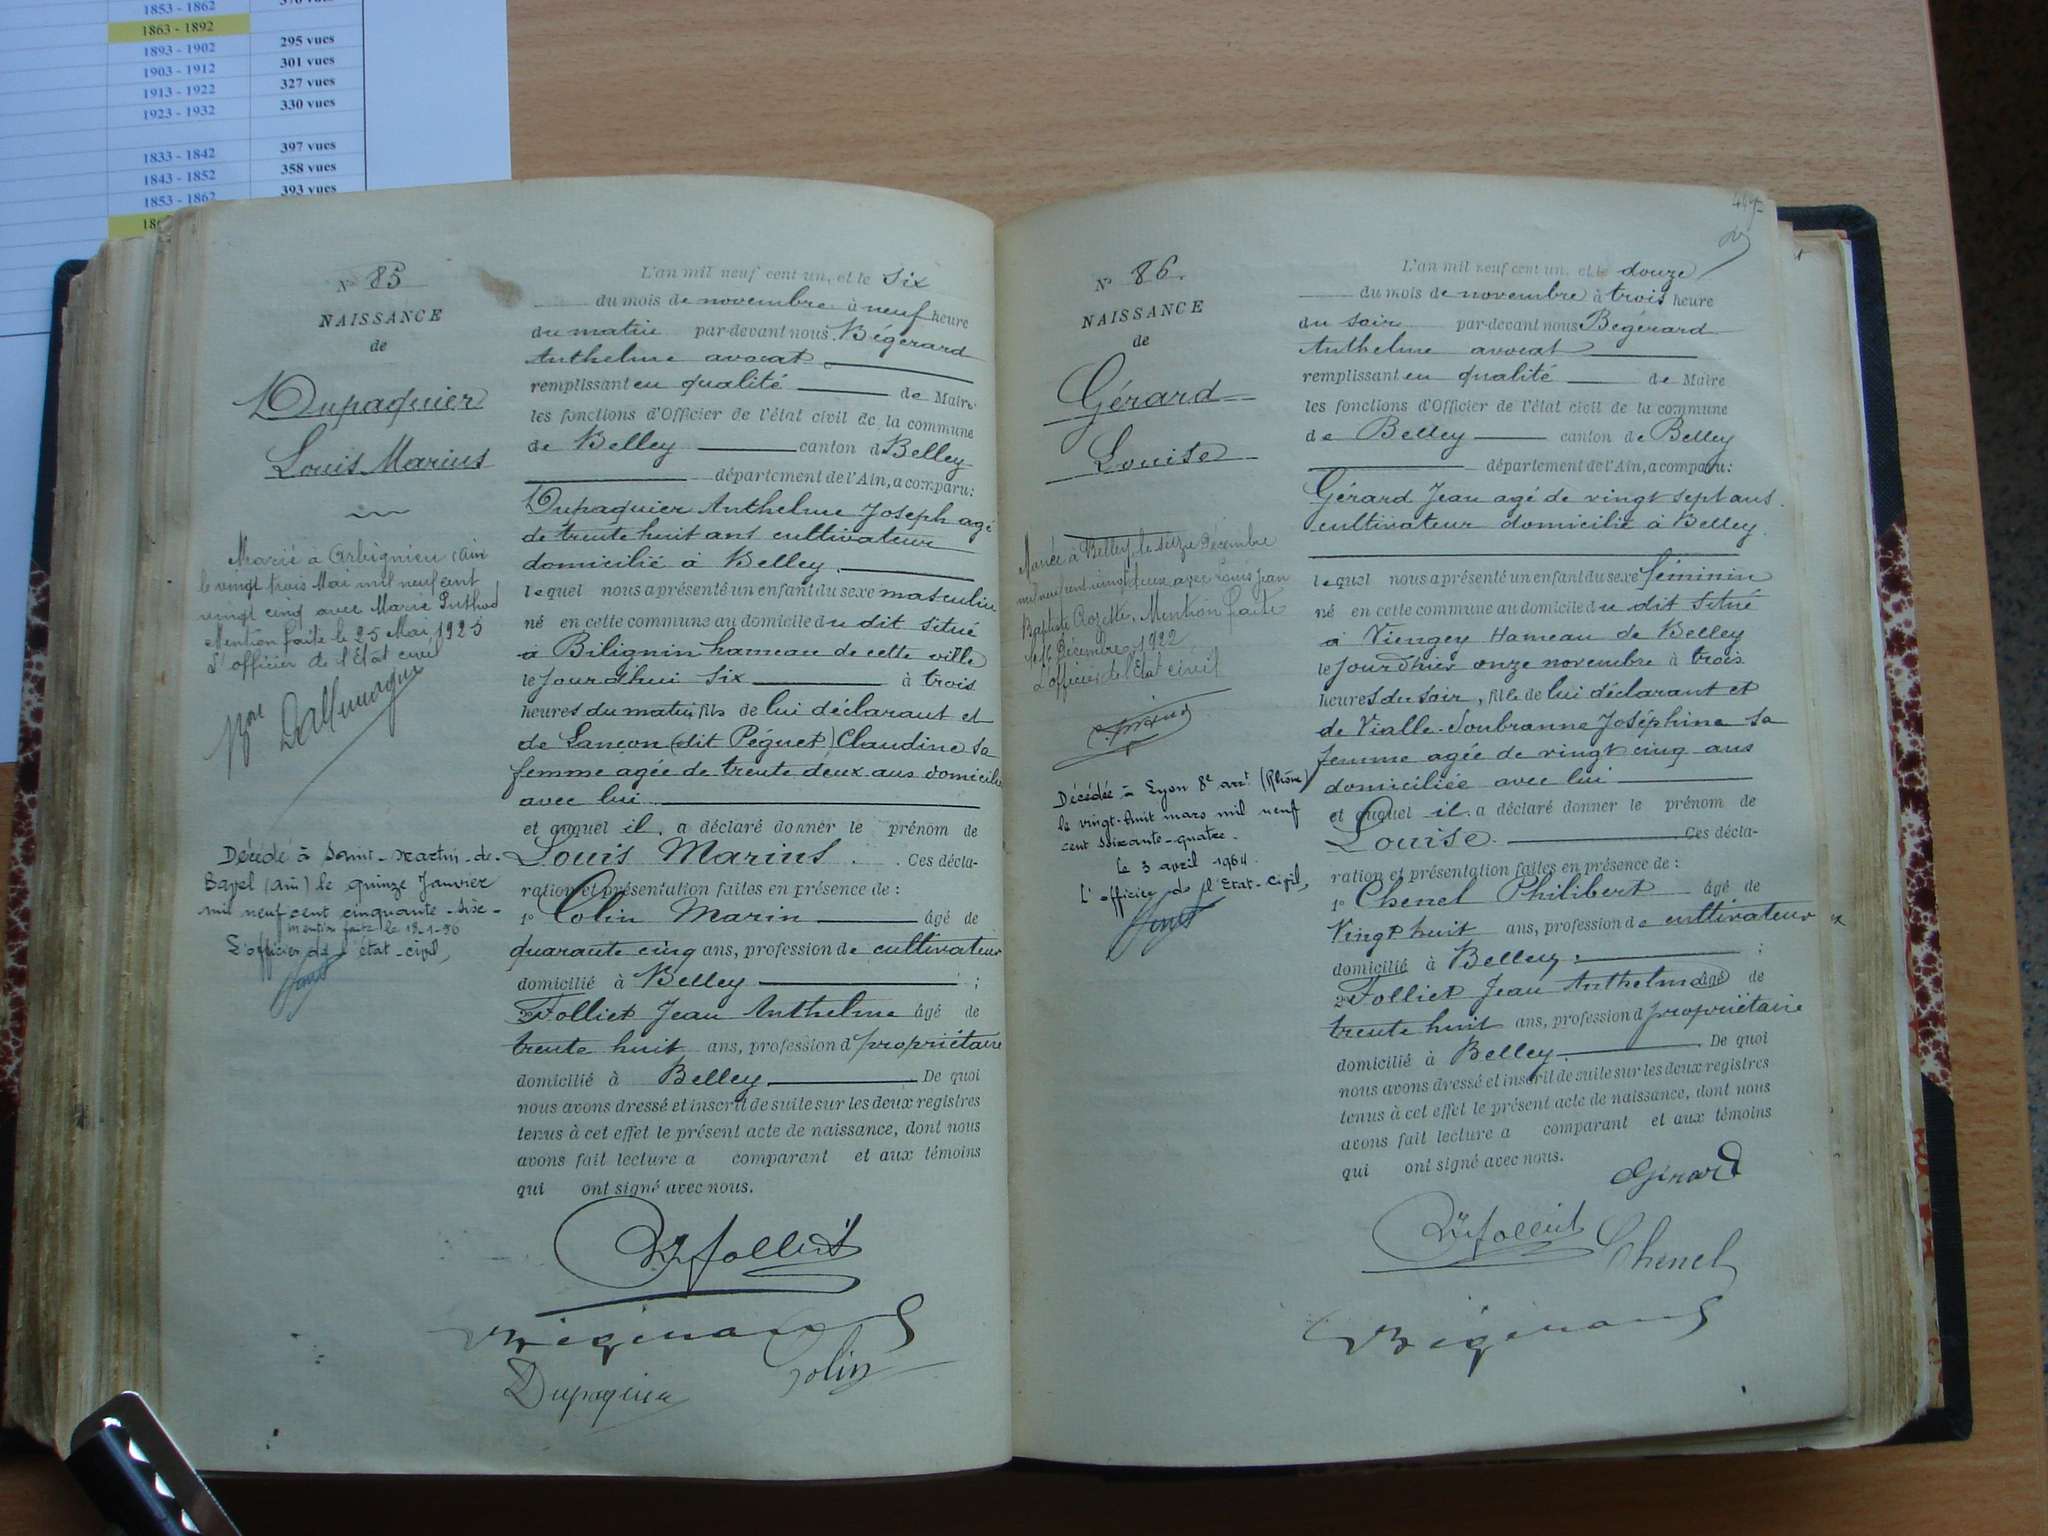 1853 - 1862
1863 - 1892
1893 - 1902 295 vues
1903 - 1912 301 vues
1913 - 1922 327 vues
1923 - 1932 330 vues
1833 - 1842 397 vues
1843 - 1852 358 vues
1853 - 1862 393 vues
N° 85
NAISSANCE
de
Dupaquier
Louis Marius
Marié à Arbignieu (Ain
le vingt trois Mai mil neuf cent
vingt cinq avec Marie Puthod
Mention faite le 25 Mai 1925
L'officier de l'État civil
Décédé à Saint-Martin-de-
Bavel (Ain) le quinze Janvier
mil neuf cent cinquante-six-
mention faite le 18-1-56
L'officier de l'état-civil,
L'an mil neuf cent un, et le six
du mois de novembre à neuf heure
du matin par-devant nous Bégérard
Anthelme avocat
remplissant en qualité de Maire
les fonctions d'Officier de l'état civil de la commune
de Belley canton d Belley
département de l'Ain, a comparu:
Dupaquier Anthelme Joseph agé
de trente huit ans cultivateur
domicilié à Belley
lequel nous a présenté un enfant du sexe masculin
né en cette commune au domicile du dit situé
à Bilignin hameau de cette ville
le jour d'hui six à trois
heures du matin, fils de lui déclarant et
de Lançon (dit Péguet) Claudine sa
femme agée de trente deux ans domicilié
avec lui
et auquel il a déclaré donner le prénom de
Louis Marius. Ces décla-
ration et présentation faites en présence de :
1° Colin Marin âgé de
quarante cinq ans, profession de cultivateur
domicilié à Belley ;
2° Folliet Jean Anthelme âgé de
trente huit ans, profession d propriétaire
domicilié à Belley De quoi
nous avons dressé et inscrit de suite sur les deux registres
tenus à cet effet le présent acte de naissance, dont nous
avons fait lecture a comparant et aux témoins
qui ont signé avec nous.
Folliet
Bégérard
Dupaquier Colin
N° 86.
NAISSANCE
de
Gérard
Louise
Mariée à Belley le seize Décembre
mil neuf cent vingt deux avec Louis Jean
Baptiste Mention faite
Décembre 1922
L'officier de l'État civil
Décédée à Lyon 8e arrt (Rhône)
le vingt-huit mars mil neuf
cent soixante-quatre.
le 3 avril 1964
L'officier de l'Etat-Civil,
L'an mil neuf cent un, et le douze
du mois de novembre à trois heure
du soir par-devant nous Bégérard
Anthelme avocat
remplissant en qualité de Maire
les fonctions d'Officier de l'état civil de la commune
de Belley canton de Belley
département de l'Ain, a comparu:
Gérard Jean agé de vingt sept ans
cultivateur domicilié à Belley
lequel nous a présenté un enfant du sexe féminin
né en cette commune au domicile du dit situé
à Hameau de Belley
le jour d'hier onze novembre à trois
heures du soir, fille de lui déclarant et
de Vialle-Soubranne Joséphine sa
femme agée de vingt cinq ans
domiciliée avec lui
et auquel il a déclaré donner le prénom de
Louise. Ces décla-
ration et présentation faites en présence de :
1° Chenel Philibert âgé de
Vingt huit ans, profession de cultivateur
domicilié à Belley ;
2° Folliet Jean Anthelme âgé de
trente huit ans, profession d propriétaire
domicilié à Belley. De quoi
nous avons dressé et inscrit de suite sur les deux registres
tenus à cet effet le présent acte de naissance, dont nous
avons fait lecture a comparant et aux témoins
qui ont signé avec nous.
Gérard
Folliet Chenel
Bégérard